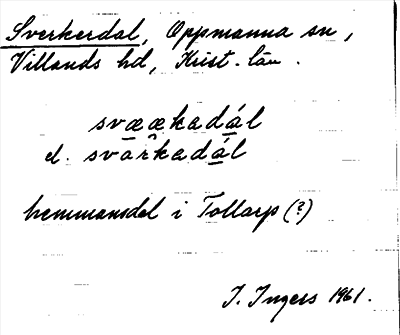 Sverkerdal, Oppmanna sn,
Villands hd, Krist. län.
svææ̂kadál
el. svärkadál
hemmansdel i Tollarp (?)
I. Ingers 1961.